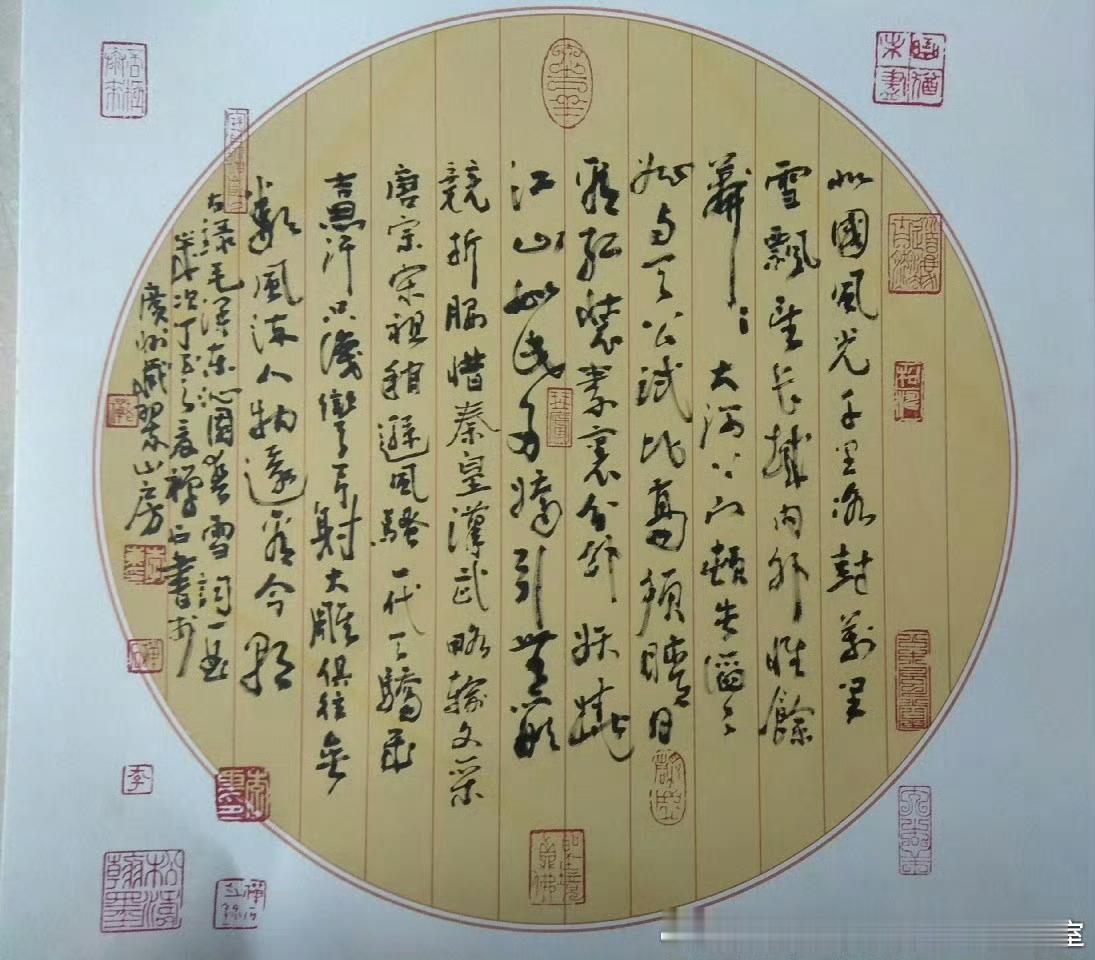 北國風光千里冰封萬里
雪飄望長城內外惟餘
莽〻大河上下頓失滔〻
欲与天公試比高須晴日
看紅裝素裹分外妖嬈
江山如此多嬌引無數
競折腰惜秦皇漢武略輸文采
唐宗宋祖稍遜風騷一代天驕成
吉思汗只識彎弓射大雕俱往矣
數風流人物還看今朝
右錄毛澤東沁園春雪詞一首
歲次丁亥之夏禪石書於
廣州藏翠山房
李
松濤翰墨
室